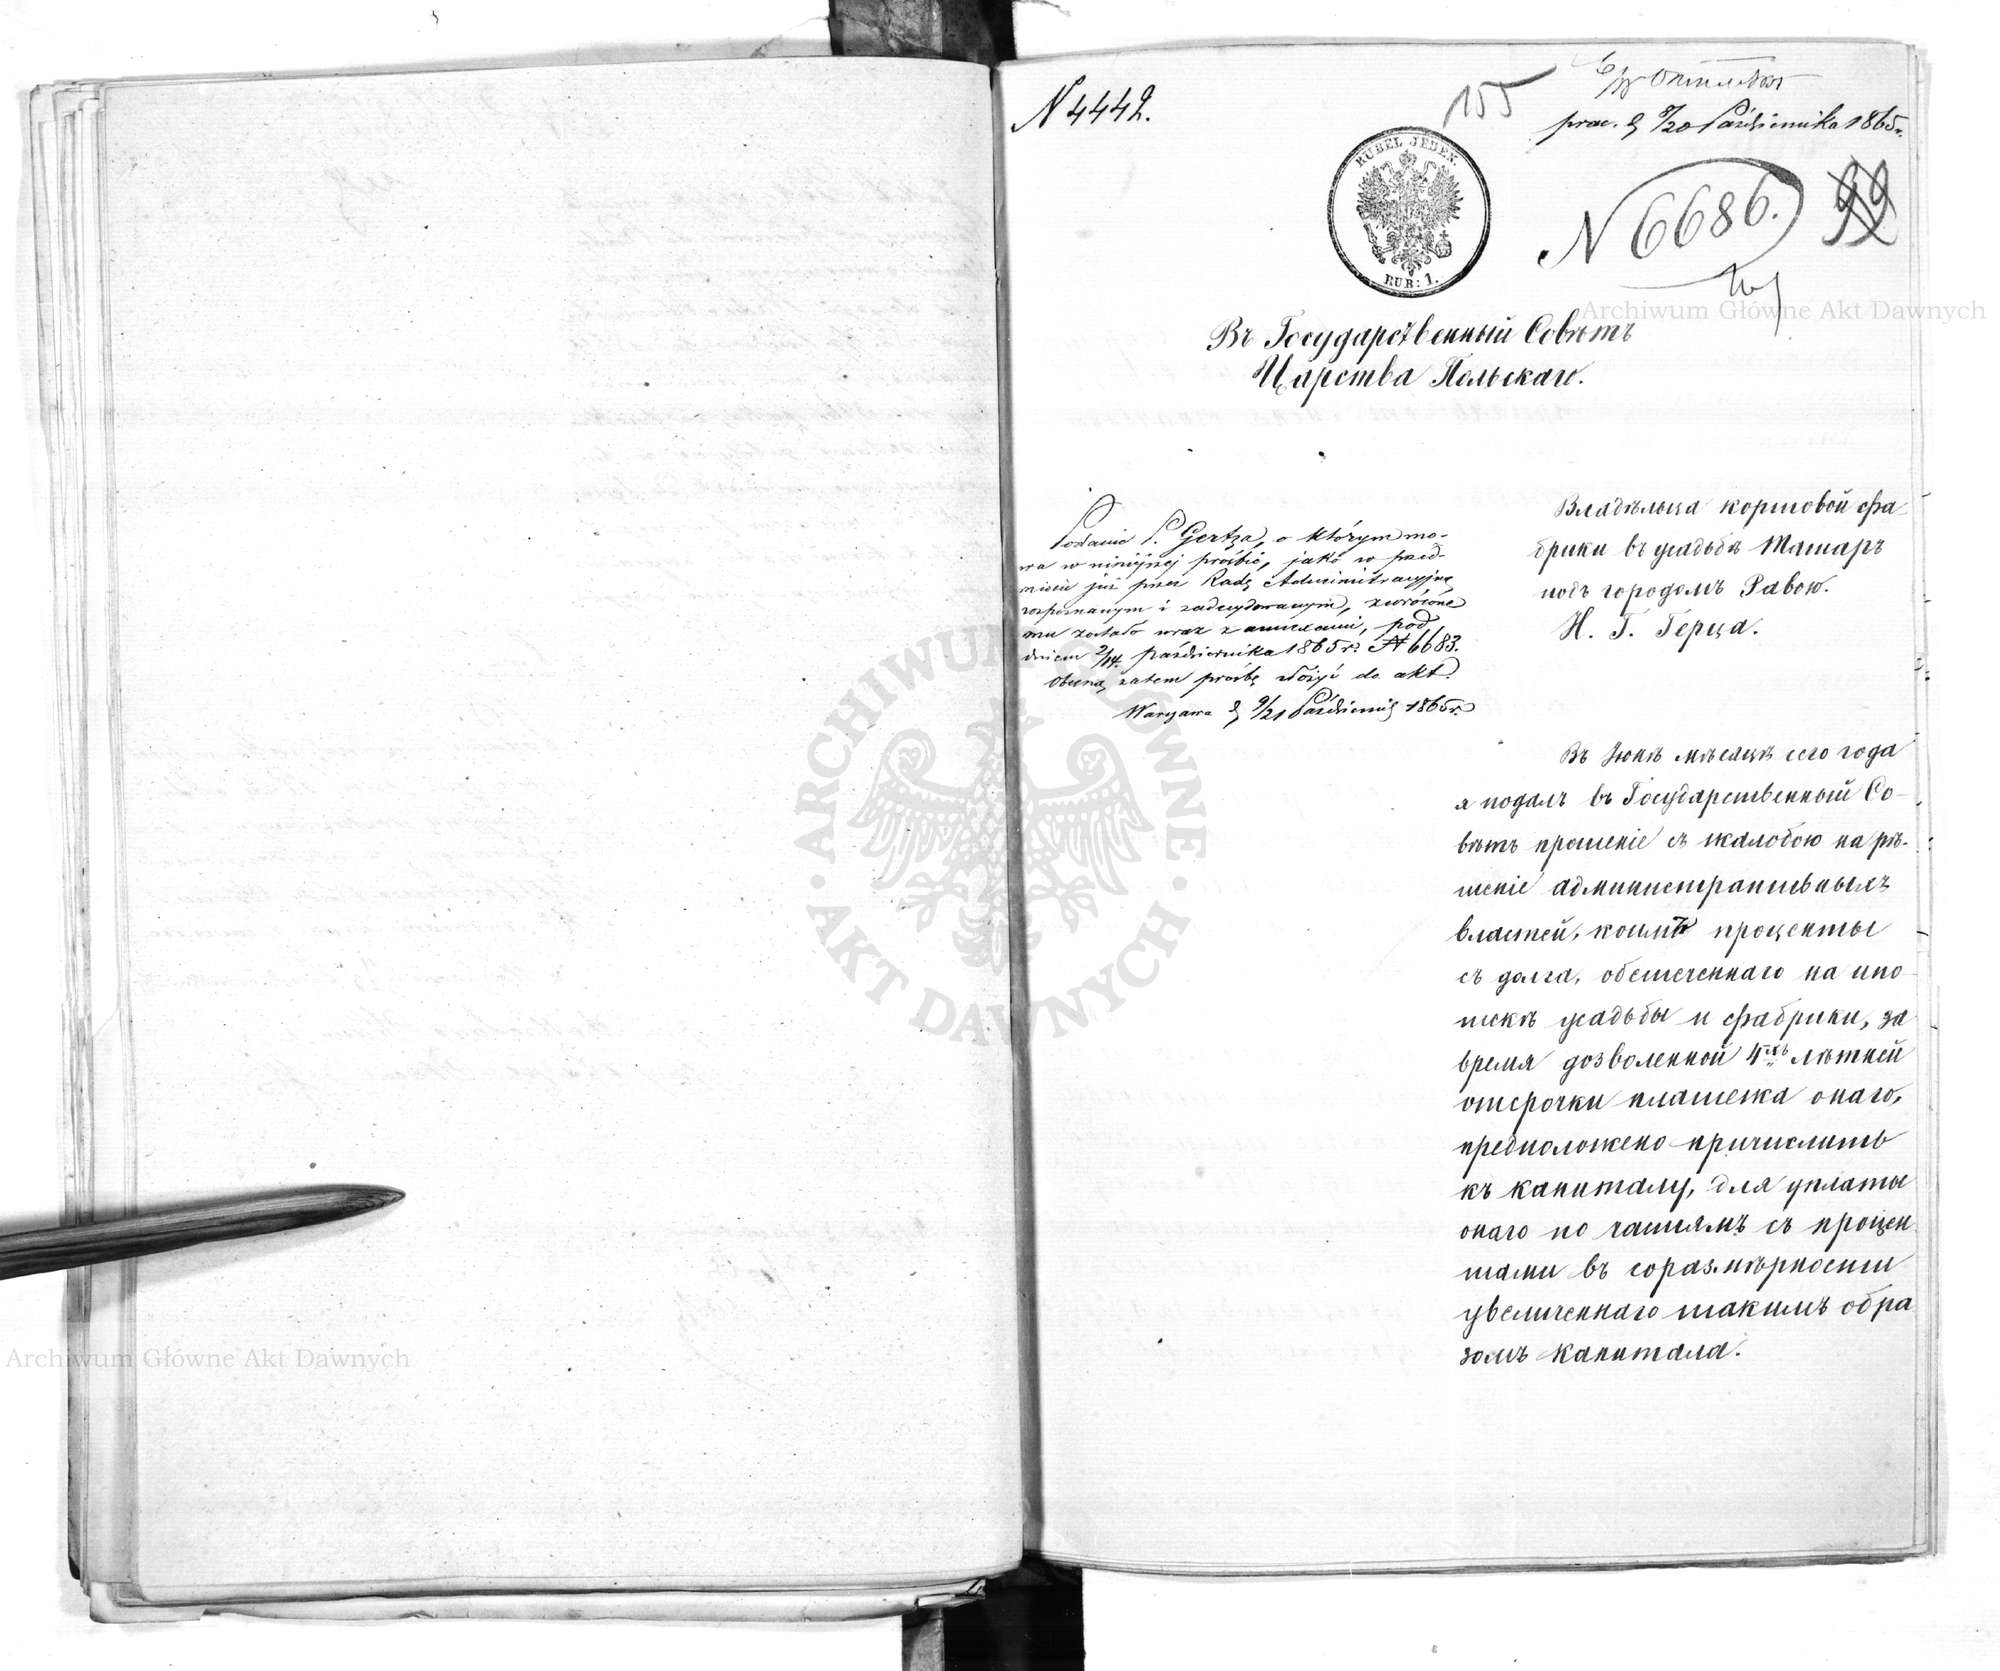 N 4442.
155
prac. d 8/20 Października 1865 r.
N 6686.
99
RUBEL JEDEN.
RUB: 1.
Въ Государственный Совѣтъ
Царства Польскаго.
Podanie P. Gertza, o którym mo-
wa w niniejszej prośbie, jako w przed-
miocie już przez Radę Administracyjną
rozpoznanym i zadecydowanym, zwrócone
mu zostało wraz z annexami, pod
dniem 2/14 Października 1865 r. N 6683.
Obecną zatem prośbę złożyć do akt.
Warszawa d 9/21 Październik 1865 r.
Владѣльца кортовой фа
брики въ усадьбѣ Татаръ
подъ городомъ Равою.
Н. Г. Герца.
Въ Іюнѣ мѣсяцѣ сего года
я подалъ въ Государственный Со-
вѣтъ прошеніе съ жалобою на рѣ-
шеніе административныхъ
властей, коимъ проценты
съ долга, обезпеченнаго на ипо
текѣ усадьбы и фабрики, за
время дозволенной 4хъ лѣтней
отсрочки платежа онаго,
предположено причислить
къ капиталу, для уплаты
онаго по частямъ съ процен
тами въ соразмѣрности
увеличеннаго такимъ обра
зомъ капитала.
Archiwum Główne Akt Dawnych
ARCHIWUM GŁÓWNE
AKT DAWNYCH
Archiwum Główne Akt Dawnych